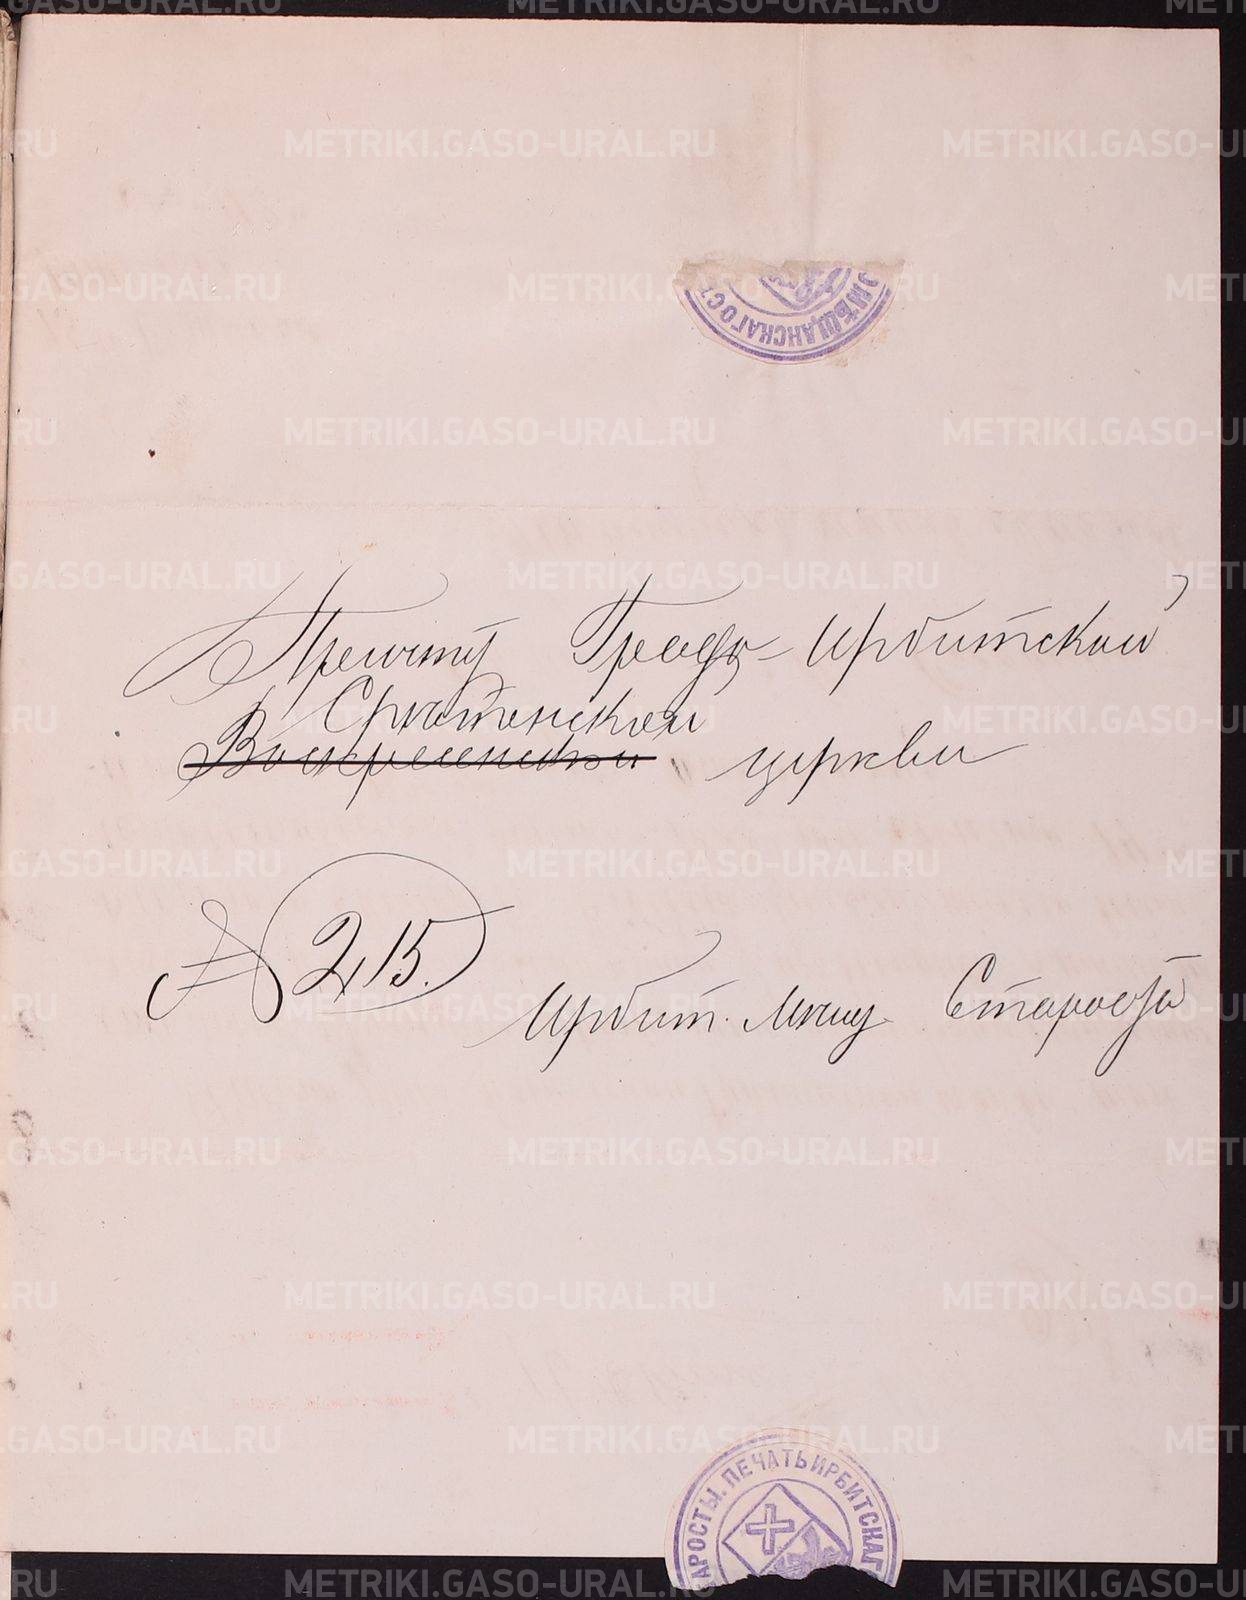 О МѢЩАНСКАГО СТ
Причту Градо-Ирбитской
Срѣтенской
Воскресенской церкви
№ 215.
Ирбит. Мѣщ. Староста
АРОСТЫ. ПЕЧАТЬ ИРБИТСКАГ
METRIKI.GASO-URAL.RU